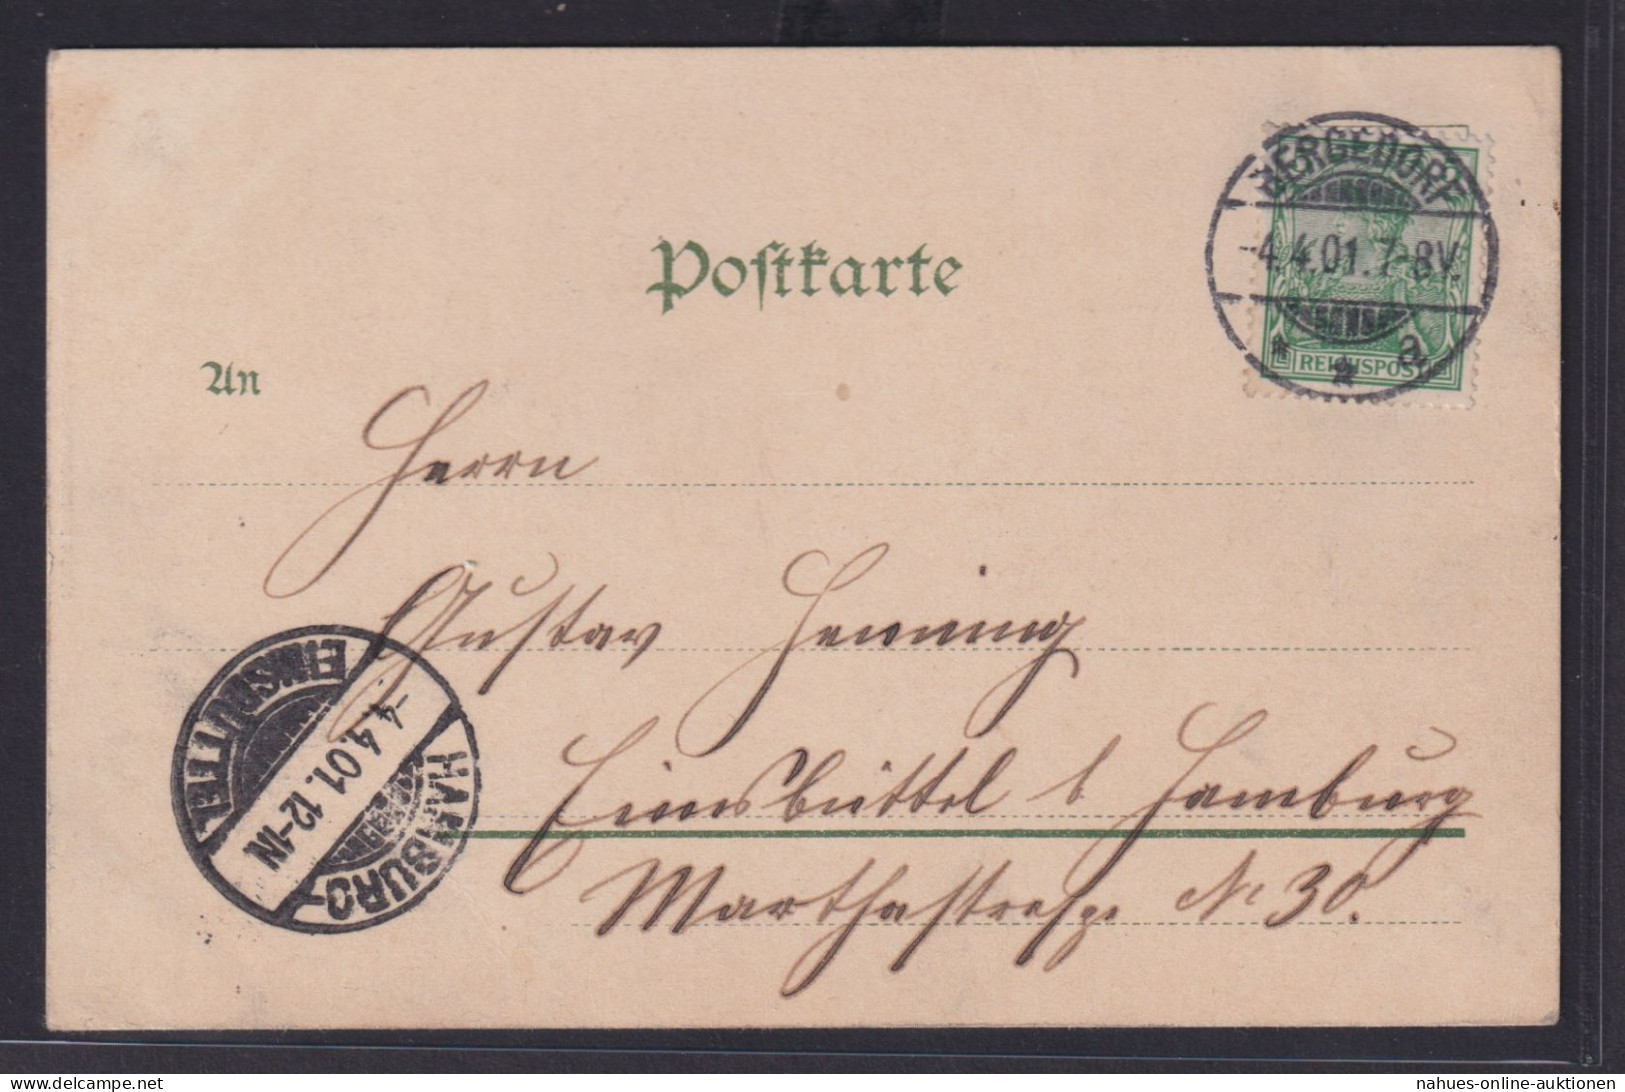 Postkarte
BERGEDORF
-4.4.01.7-8V.
* * a
REICHSPOST
An
Herrn
Gustav Henning
Eimsbüttel b Hamburg
Marthastrasse No 30.
EIMSBÜTTEL
-4.4.01.12-1N
HAMBURG-
nahues-online-auktionen